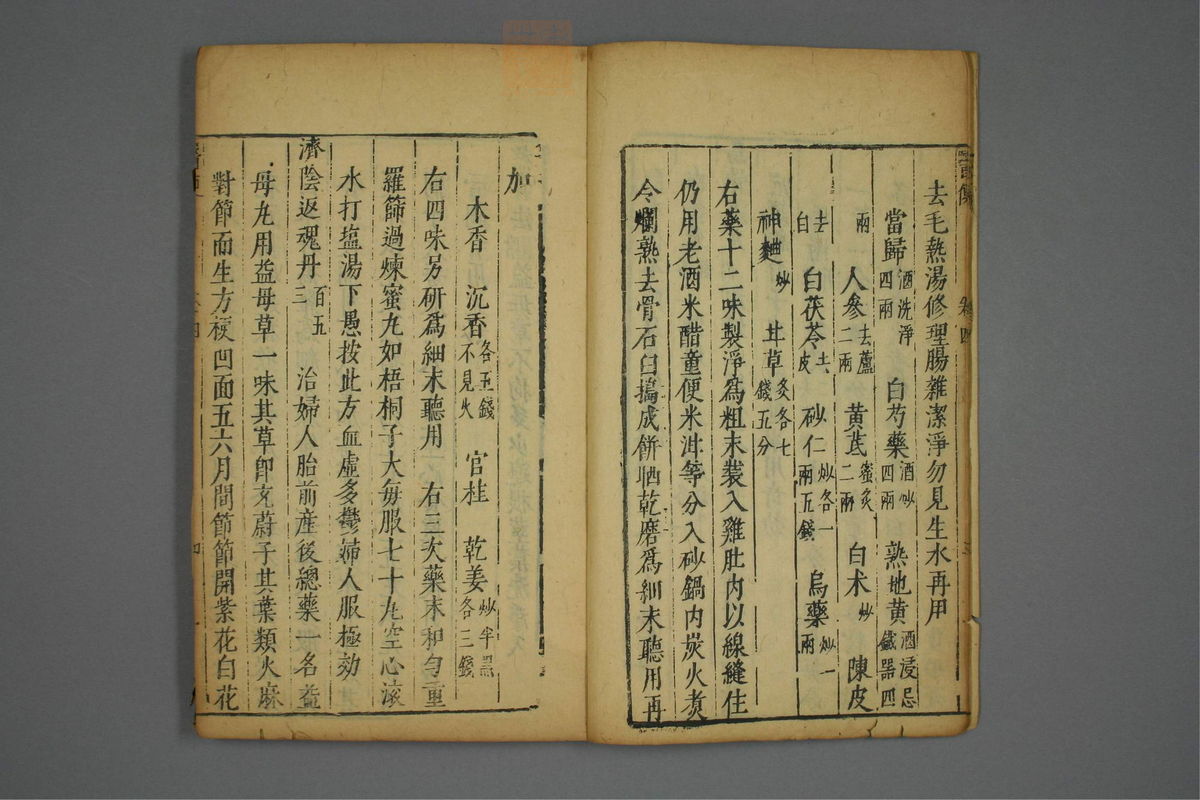 去毛熱湯修理腸雜潔淨勿見生水再用
當歸酒洗淨四兩 白芍藥酒炒四兩 熟地黃酒浸忌鐵器四
兩 人參去蘆二兩 黃芪蜜炙二兩 白术炒 陳皮
去白 白茯苓去皮 砂仁炒各一兩五錢 烏藥炒一兩
神麯炒 甘草炙各七錢五分
右藥十二味製淨爲粗末裝入雞肚内以線縫住
仍用老酒米醋童便米泔等分入砂鍋内炭火煑
令爛熟去骨石臼擣成餅晒乾磨爲細末聽用再
加
木香 沉香各五錢不見火 官桂 乾姜炒半黑各三錢
右四味另研爲細末聽用 右三次藥末和勻重
羅篩過煉蜜丸如梧桐子大每服七十丸空心滾
水打塩湯下愚按此方血虛多鬱婦人服極効
濟陰返魂丹百五三 治婦人胎前產後總藥一名益
母丸用益母草一味其草卽充蔚子其葉類火麻
對節而生方梗凹面五六月間節節開紫花白花